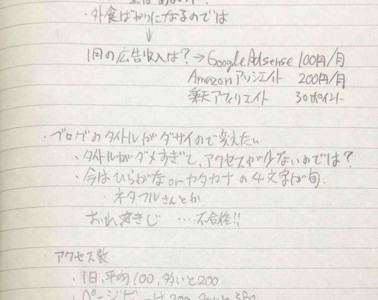 ・外食ばかりになるのでは
↓
1月の広告収入は?→Google Adsense 100円/月
Amazonアソシエイト 200円/月
楽天アフィリエイト 30ポイント
・ブログのタイトルがダサイので変えたい
・タイトルがダメすぎて、アクセスが少ないのでは?
・今はひらがなorカタカナの4文字が旬
・ネタフルさんとか
…不合格!!
アクセス数
・1日、平均100、多いと200